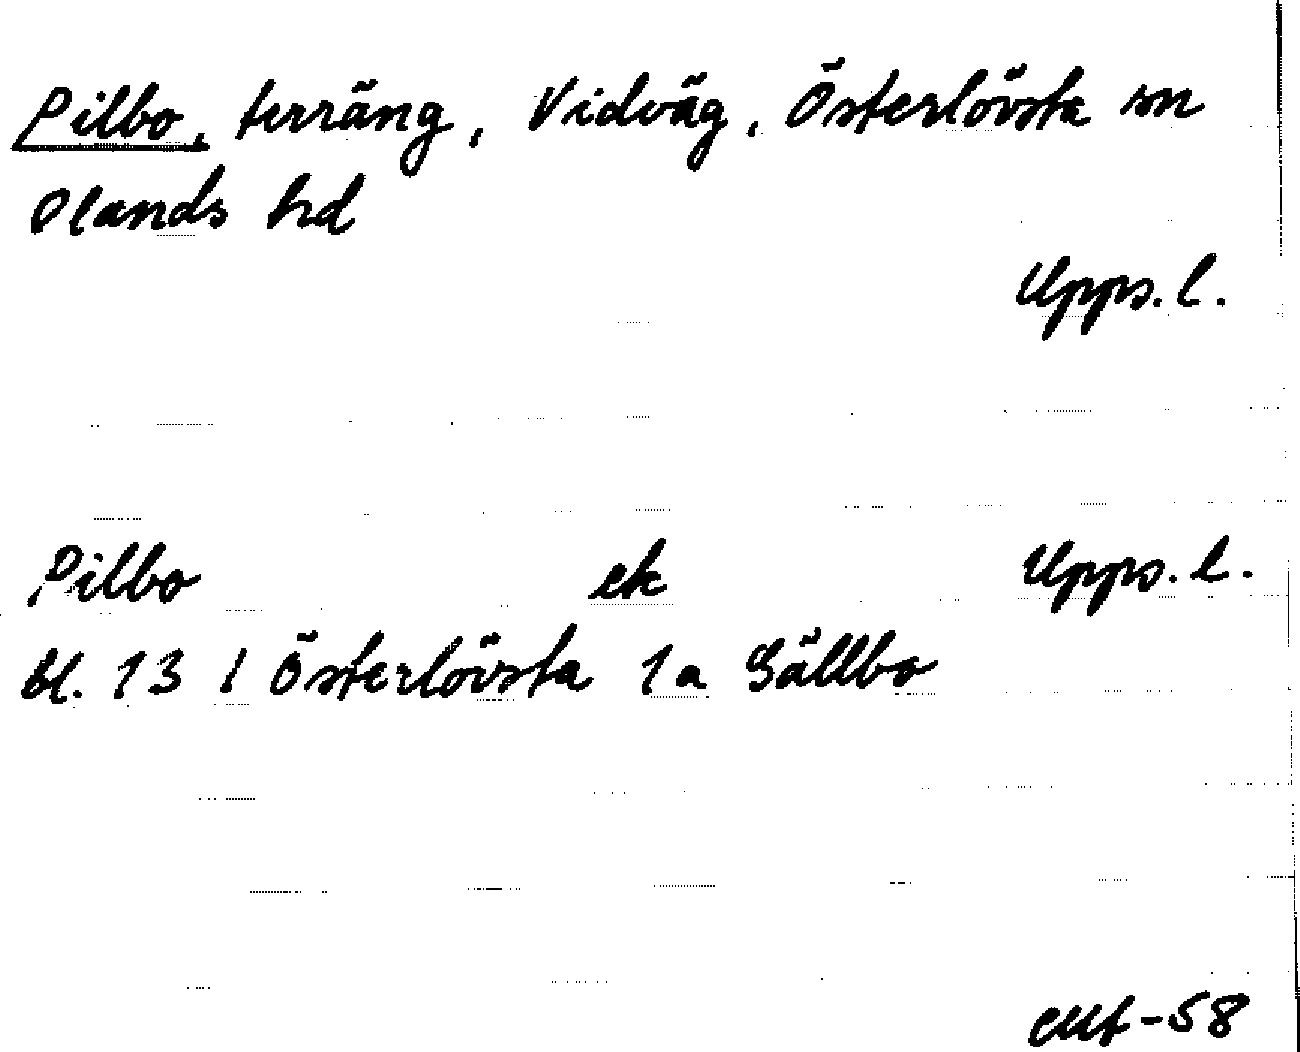 Pilbo, terräng, Vidväg, Österlövsta sn
Olands hd
Upps. l.
Pilbo ek Upps. l.
bl. 13 l Österlövsta 1a Gällbo
-58